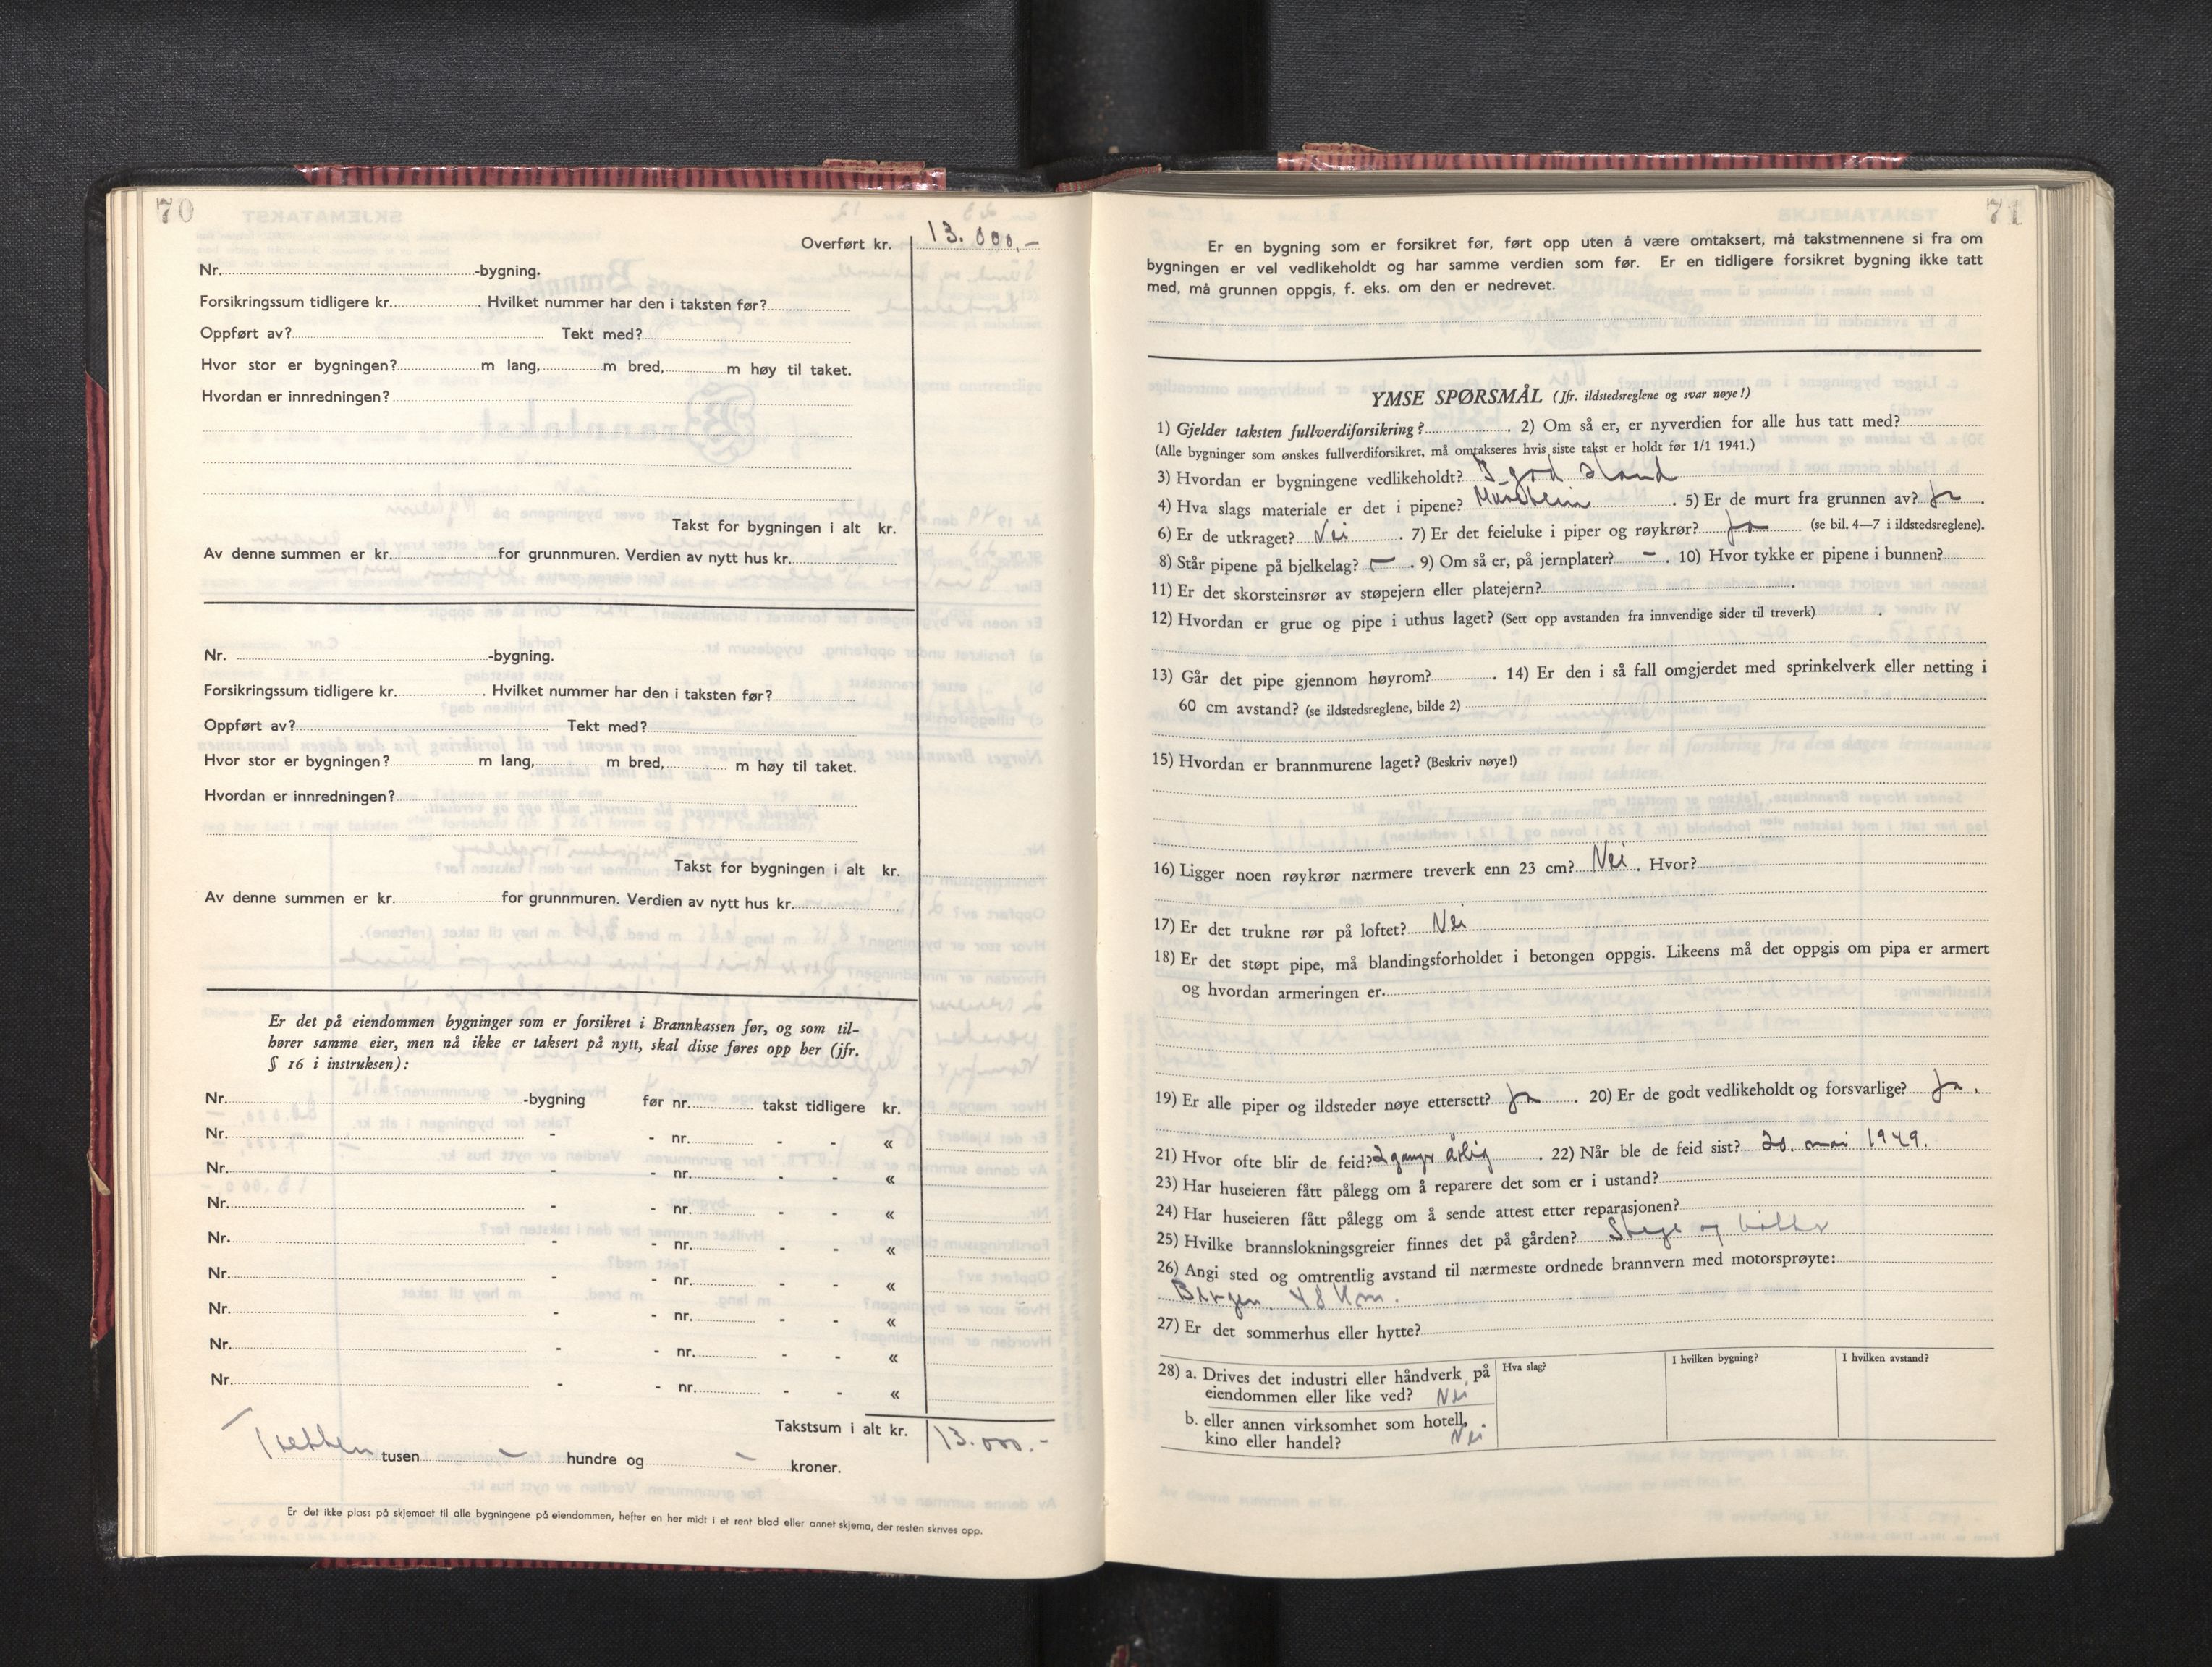 70
Overført kr. 13.000.-
Nr. -bygning.
Forsikringssum tidligere kr. . Hvilket nummer har den i taksten før?
Oppført av? Tekt med?
Hvor stor er bygningen? m lang, m bred, m høy til taket.
Hvordan er innredningen?
Takst for bygningen i alt kr.
Av denne summen er kr. for grunnmuren. Verdien av nytt hus kr.
Nr. -bygning.
Forsikringssum tidligere kr. . Hvilket nummer har den i taksten før?
Oppført av? Tekt med?
Hvor stor er bygningen? m lang, m bred, m høy til taket.
Hvordan er innredningen?
Takst for bygningen i alt kr.
Av denne summen er kr. for grunnmuren. Verdien av nytt hus kr.
Er det på eiendommen bygninger som er forsikret i Brannkassen før, og som til-
hører samme eier, men nå ikke er taksert på nytt, skal disse føres opp her (jfr.
§ 16 i instruksen):
Nr. -bygning før nr. takst tidligere kr.
Nr. - - nr. - - «
Nr. - - nr. - - «
Nr. - - nr. - - «
Nr. - - nr. - - «
Nr. - - nr. - - «
Nr. - - nr. - - «
Nr. - - nr. - - «
Nr. - - nr. - - «
Takstsum i alt kr. 13.000.-
Tretten tusen - hundre og - kroner.
Er det ikke plass på skjemaet til alle bygningene på eiendommen, hefter en her midt i et rent blad eller annet skjema, der resten skrives opp.
71
Er en bygning som er forsikret før, ført opp uten å være omtaksert, må takstmennene si fra om
bygningen er vel vedlikeholdt og har samme verdien som før. Er en tidligere forsikret bygning ikke tatt
med, må grunnen oppgis, f. eks. om den er nedrevet.
YMSE SPØRSMÅL (Jfr. ildstedsreglene og svar nøye!)
1) Gjelder taksten fullverdiforsikring? . 2) Om så er, er nyverdien for alle hus tatt med?
(Alle bygninger som ønskes fullverdiforsikret, må omtakseres hvis siste takst er holdt før 1/1 1941.)
3) Hvordan er bygningene vedlikeholdt? I god stand
4) Hva slags materiale er det i pipene? Murstein . 5) Er de murt fra grunnen av? Ja .
6) Er de utkraget? Nei . 7) Er det feieluke i piper og røykrør? Ja (se bil. 4—7 i ildstedsreglene).
8) Står pipene på bjelkelag? - . 9) Om så er, på jernplater? - . 10) Hvor tykke er pipene i bunnen?
11) Er det skorsteinsrør av støpejern eller platejern? .
12) Hvordan er grue og pipe i uthus laget? (Sett opp avstanden fra innvendige sider til treverk) .
13) Går det pipe gjennom høyrom? . 14) Er den i så fall omgjerdet med sprinkelverk eller netting i
60 cm avstand? (se ildstedsreglene, bilde 2)
15) Hvordan er brannmurene laget? (Beskriv nøye!)
16) Ligger noen røykrør nærmere treverk enn 23 cm? Nei . Hvor?
17) Er det trukne rør på loftet? Nei
18) Er det støpt pipe, må blandingsforholdet i betongen oppgis. Likeens må det oppgis om pipa er armert
og hvordan armeringen er.
19) Er alle piper og ildsteder nøye ettersett? Ja . 20) Er de godt vedlikeholdt og forsvarlige? Ja .
21) Hvor ofte blir de feid? 2 ganger årlig . 22) Når ble de feid sist? 20. mai 1949.
23) Har huseieren fått pålegg om å reparere det som er i ustand?
24) Har huseieren fått pålegg om å sende attest etter reparasjonen?
25) Hvilke brannslokningsgreier finnes det på gården? Stige og bøtter
26) Angi sted og omtrentlig avstand til nærmeste ordnede brannvern med motorsprøyte:
Bergen. 48 km.
27) Er det sommerhus eller hytte?
28) a. Drives det industri eller håndverk på Hva slag? I hvilken bygning? I hvilken avstand?
eiendommen eller like ved? Nei
b. eller annen virksomhet som hotell,
kino eller handel? Nei